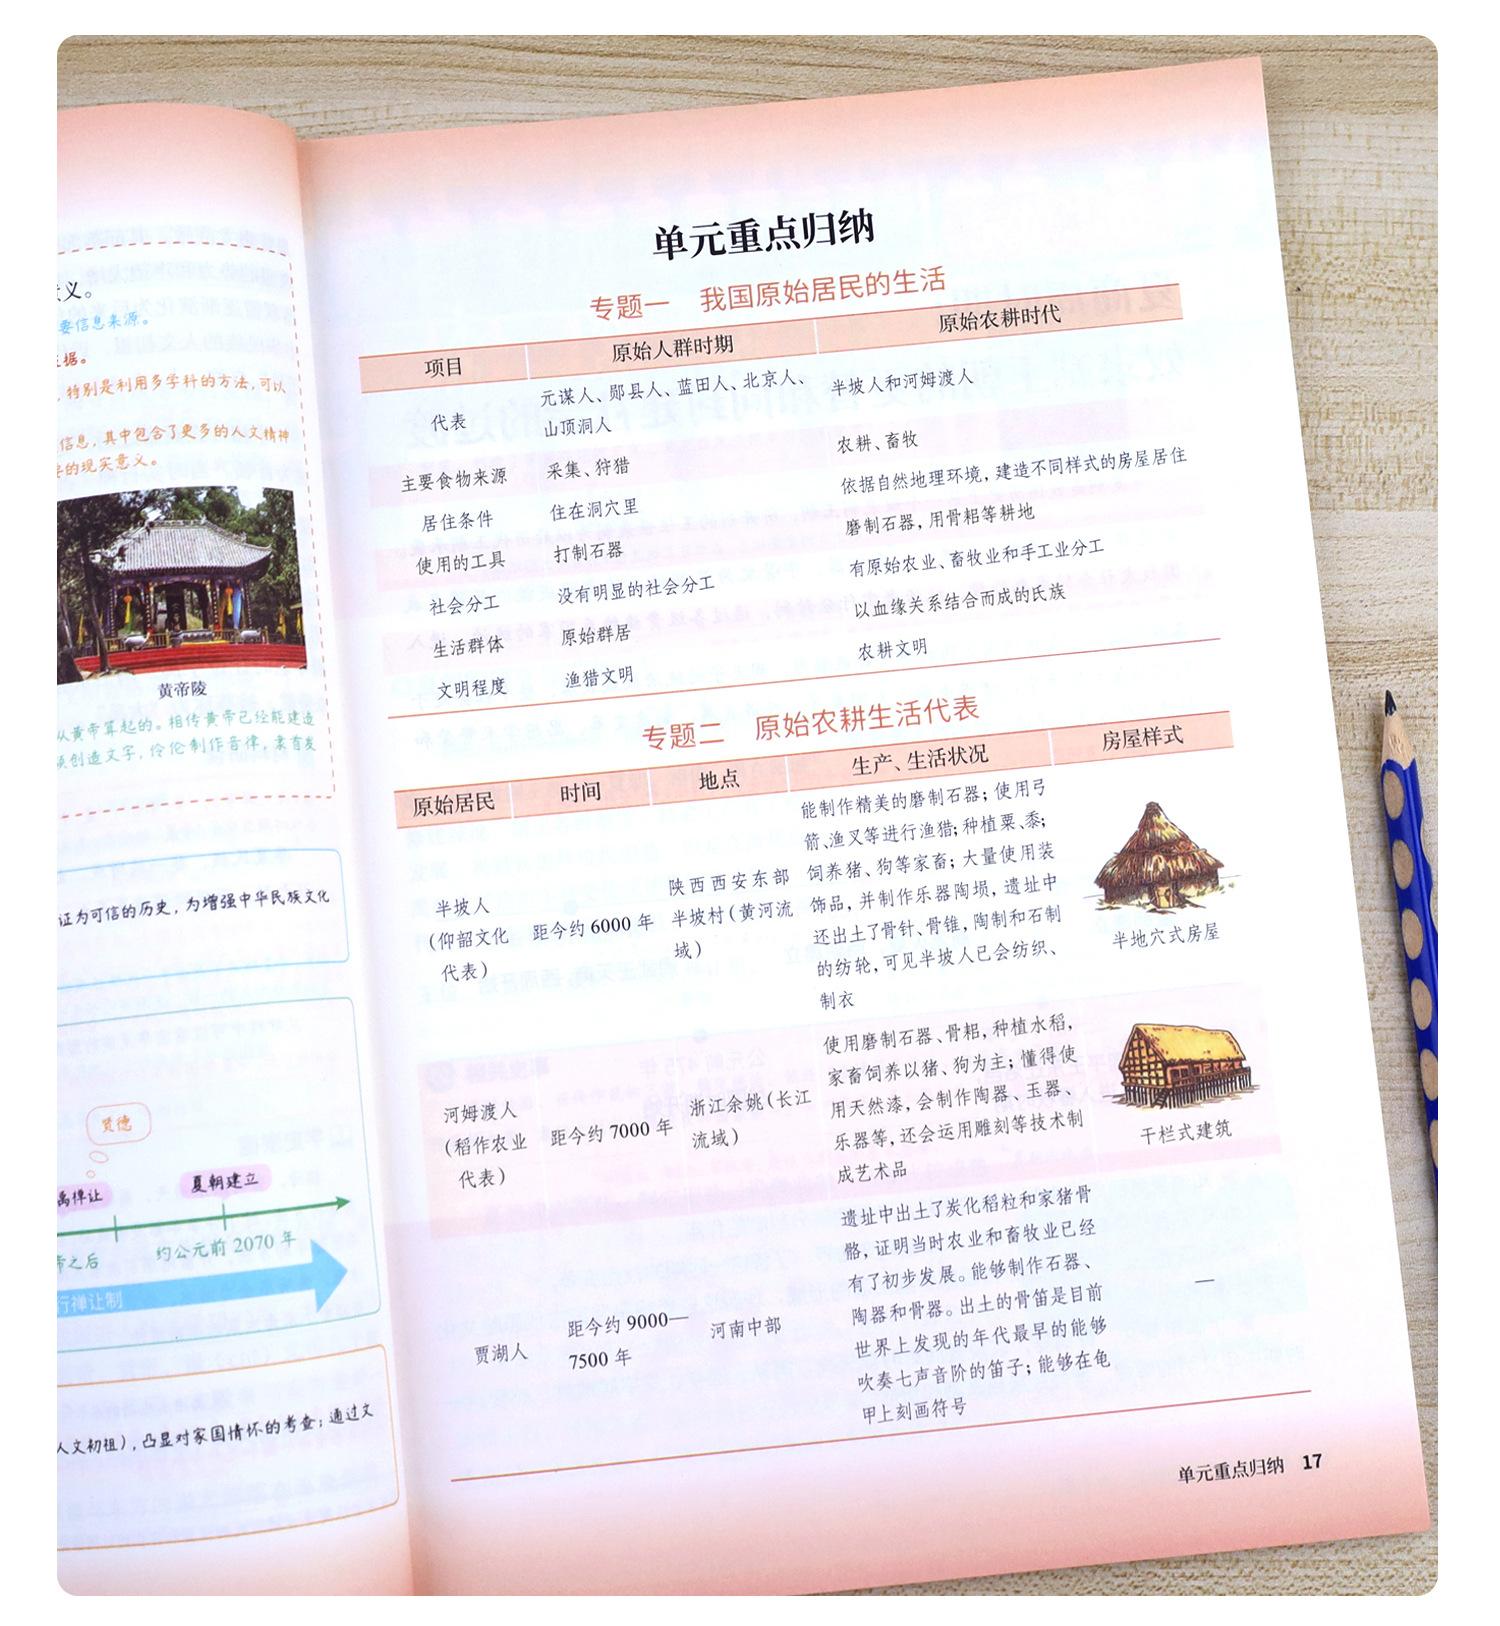 意义。
要信息来源。
据。
，特别是利用多学科的方法，可以
信息，其中包含了更多的人文精神
的现实意义。
黄帝陵
从黄帝算起的。相传黄帝已经能建造
颉创造文字，伶伦制作音律，隶首发
证为可信的历史，为增强中华民族文化
贤德
禹禅让
夏朝建立
帝之后
约公元前 2070 年
行禅让制
人文初祖），凸显对家国情怀的考查；通过文
单元重点归纳
专题一 我国原始居民的生活
项目 原始人群时期 原始农耕时代
代表 元谋人、郧县人、蓝田人、北京人、 半坡人和河姆渡人
山顶洞人
主要食物来源 采集、狩猎 农耕、畜牧
居住条件 住在洞穴里 依据自然地理环境，建造不同样式的房屋居住
使用的工具 打制石器 磨制石器，用骨耜等耕地
社会分工 没有明显的社会分工 有原始农业、畜牧业和手工业分工
生活群体 原始群居 以血缘关系结合而成的氏族
文明程度 渔猎文明 农耕文明
专题二 原始农耕生活代表
原始居民 时间 地点 生产、生活状况 房屋样式
半坡人
（仰韶文化
代表）
距今约 6000 年
陕西西安东部
半坡村（黄河流
域）
能制作精美的磨制石器；使用弓
箭、渔叉等进行渔猎；种植粟、黍；
饲养猪、狗等家畜；大量使用装
饰品，并制作乐器陶埙，遗址中
还出土了骨针、骨锥，陶制和石制
的纺轮，可见半坡人已会纺织、
制衣
半地穴式房屋
河姆渡人
（稻作农业
代表）
距今约 7000 年
浙江余姚（长江
流域）
使用磨制石器、骨耜，种植水稻，
家畜饲养以猪、狗为主；懂得使
用天然漆，会制作陶器、玉器、
乐器等，还会运用雕刻等技术制
成艺术品
干栏式建筑
贾湖人
距今约 9000—
7500 年
河南中部
遗址中出土了炭化稻粒和家猪骨
骼，证明当时农业和畜牧业已经
有了初步发展。能够制作石器、
陶器和骨器。出土的骨笛是目前
世界上发现的年代最早的能够
吹奏七声音阶的笛子；能够在龟
甲上刻画符号
—
单元重点归纳 17